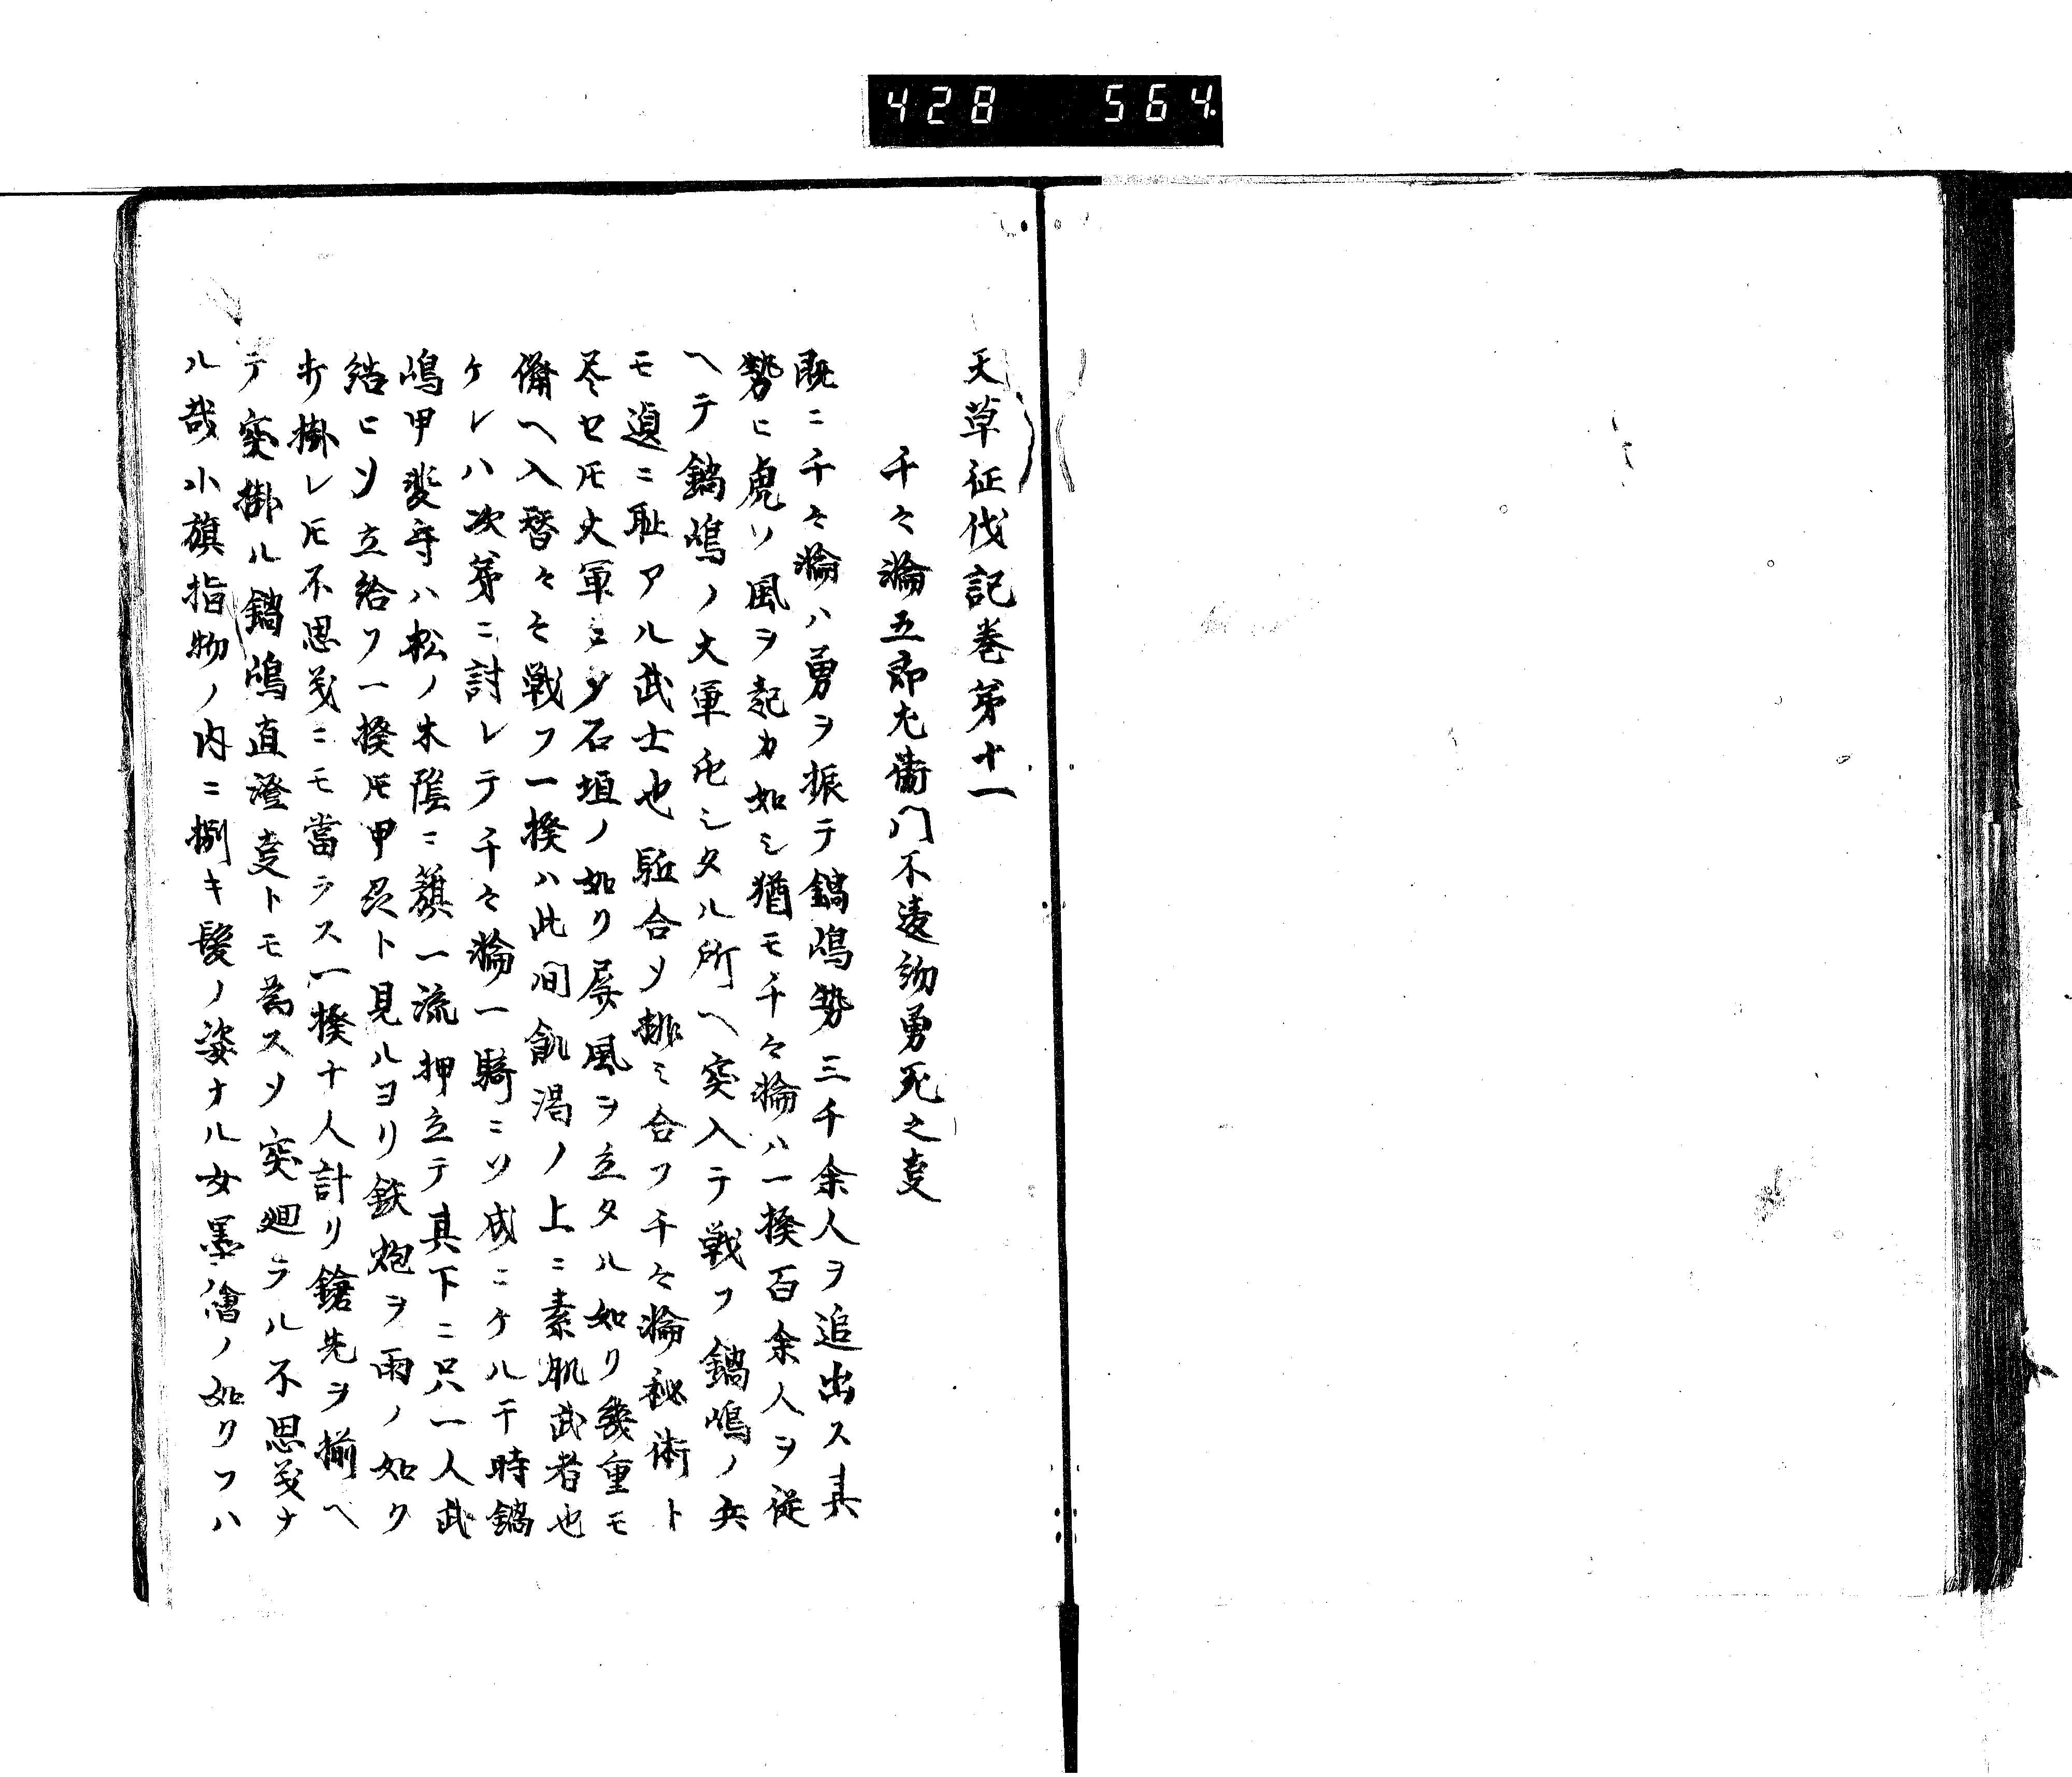 428 564
天草征伐記巻第十一
千々淪五郎左衛門不凌訥勇死之叓
既ニ千々淪ハ勇ヲ振テ鍋嶋勢三千余人ヲ追出ス其
勢ヒ虎ソ風ヲ起カ如シ猶モ千々淪ハ一揆百余人ヲ従
ヘテ鍋嶋ノ大軍屯シタル所ヘ突入テ戦フ鍋嶋ノ兵
モ道ニ耻アル武士也駈合ソ挑ミ合フ千々淪秘術ト
尽セ𪜈大軍ニソ石垣ノ如リ屏風ヲ立タル如リ幾重モ
備ヘ入替々々戦フ一揆ハ此間飢渇ノ上ニ素肌武者也
ケレハ次第ニ討レテ千々淪一騎ニソ成ニケル干時鍋
嶋甲斐守ハ松ノ木陰ニ籏一流押立テ其下ニ只一人武
結ヒソ立給フ一揆𪜈甲兵ト見ルヨリ鉄炮ヲ雨ノ如ク
打掛レ𪜈不思義ニモ當ラス一揆十人計リ鎗先ヲ揃ヘ
テ突掛ル鍋嶋直澄叓トモ為スソ突廻ラル不思義ナ
ル哉小旗指物ノ内ニ捌キ髪ノ姿ナル女墨繪ノ如リフハ